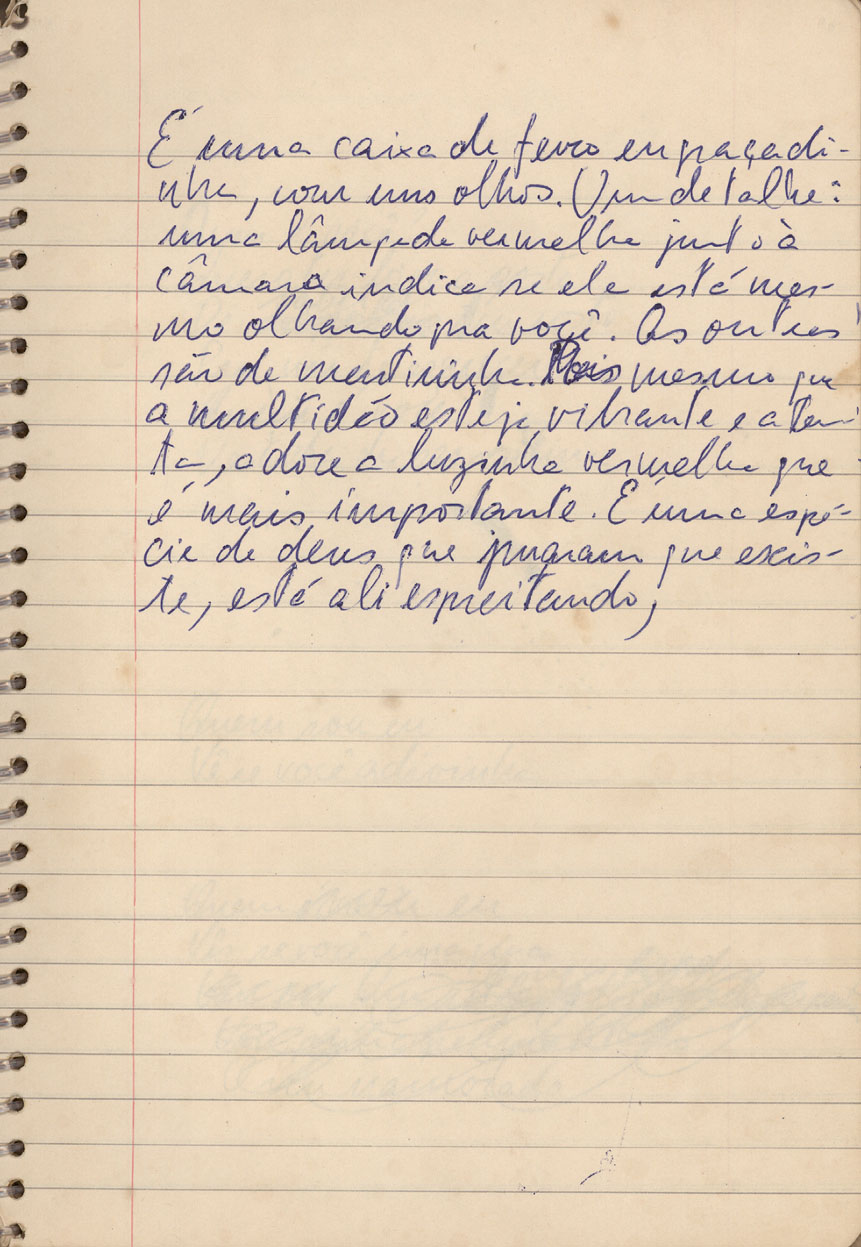 É uma caixa de ferro engraçadi-
nha, com uns olhos. Um detalhe:
uma lâmpada vermelha junto à
câmara indica se ela está mes-
mo olhando pra você. As outras
são de mentirinha. Pois mesmo que
a multidão esteja vibrante e aten-
ta, adore a luzinha vermelha que
é mais importante. É uma espé-
cie de deus que juram que exis-
te, está ali espreitando,
Quem sou eu